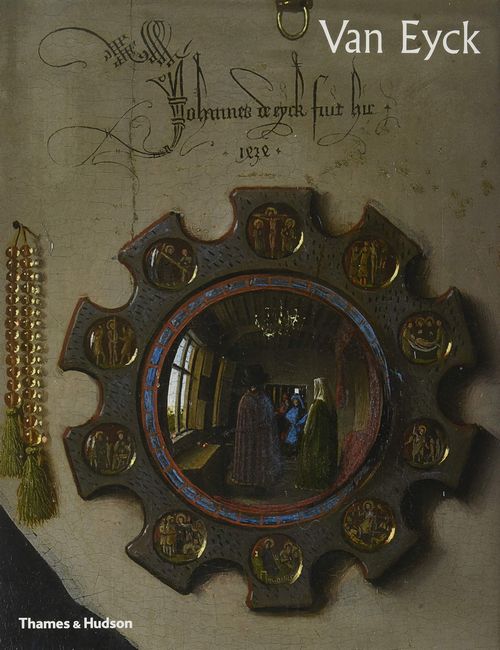 Van Eyck
Johannes de eyck fuit hic
.1434.
Thames & Hudson